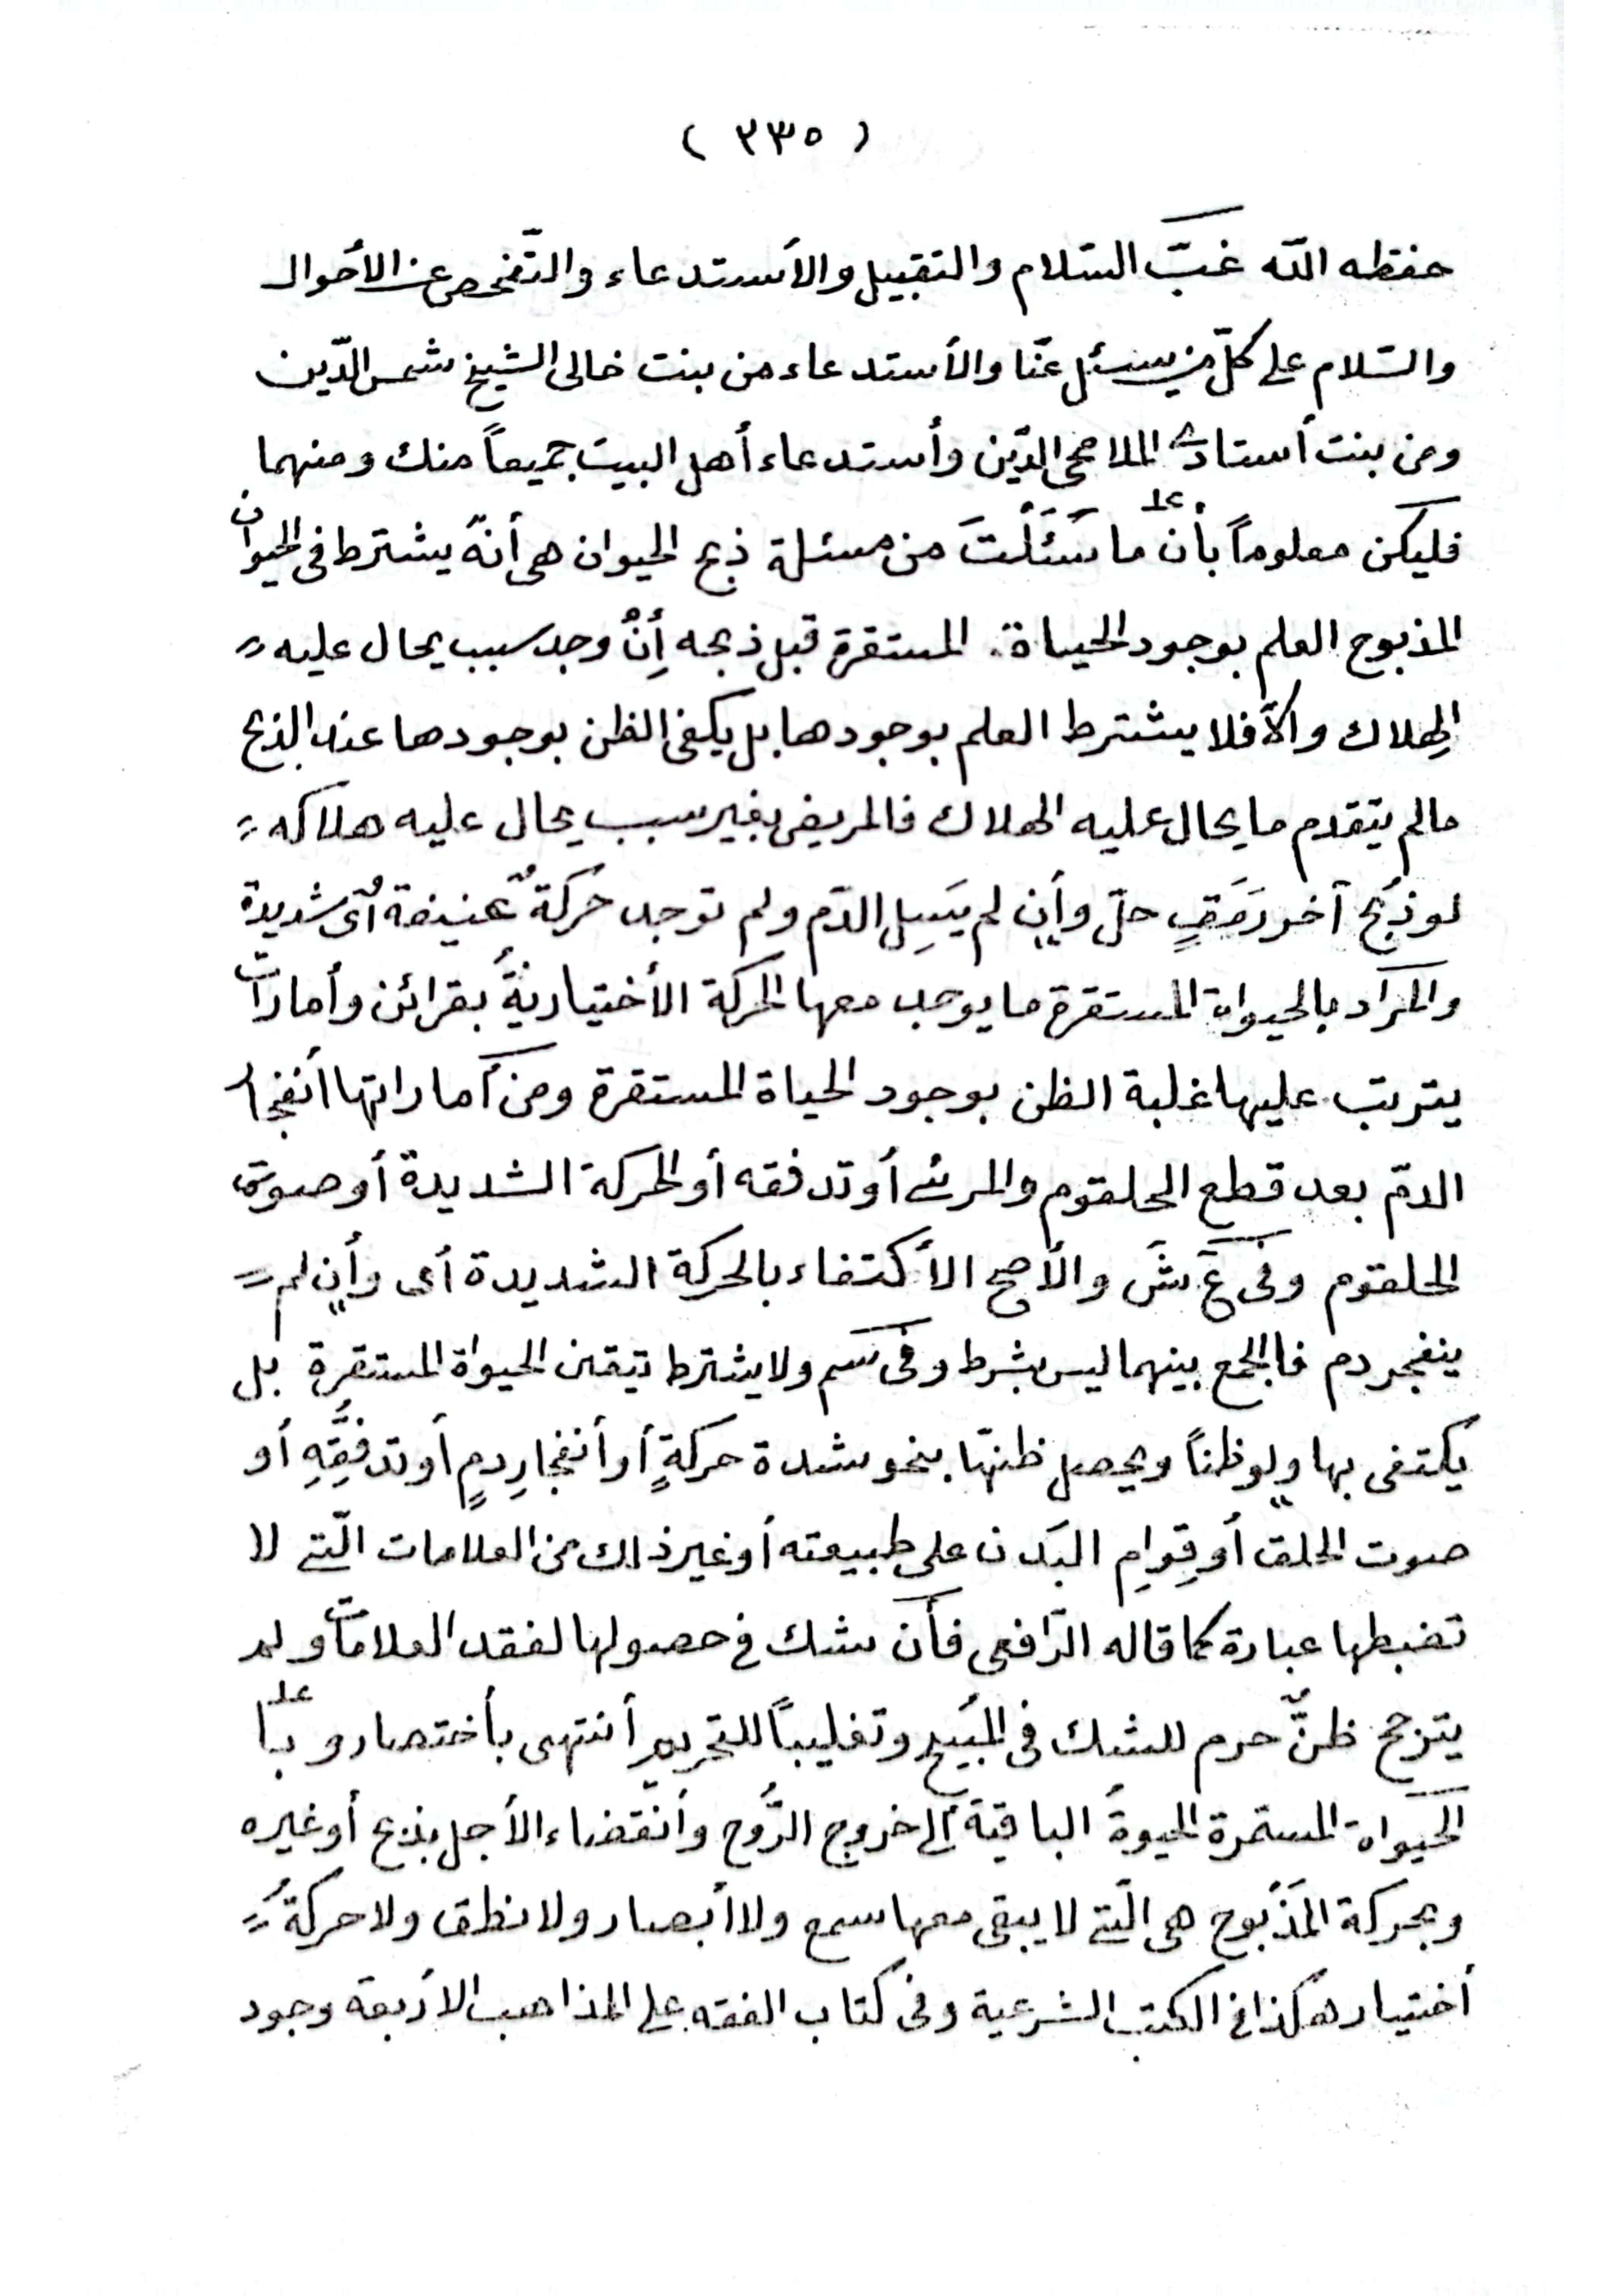 ( ٣٣٥ )
حفظه الله غبّ السّلام والتقبيل والأستدعاء والتّفحص عن الأحوال
والسّلام على كلّ من يسئل عنّا والأستدعاء من بنت خالى الشيخ شمس الدّين
ومن بنت أستادى الملا محى الدّين وأستدعاء أهل البيت جميعاً منك ومنهما
فليكن معلوماً بأن ما سَئَلْتَ من مسئلة ذبح الحيوان هى أنّه يشترط فى الحيوان
المذبوح العلم بوجود الحياة المستقرة قبل ذبحه أِنْ وجد سبب يحال عليه
الهلاك وألّا فلا يشترط العلم بوجودها بل يكفى الظن بوجودها عند الذبح
مالم يتقدم ما يحال عليه الهلاك فالمريض بغير سبب يحال عليه هلاكه
لو ذُبح آخر رَمَقٍ حلّ وأن لم يَسِل الدّم ولم توجد حركةٌ عنيفة أى شديدة
والمراد بالحيواة المستقرة ما يوجد معها الحركة الأختياريةُ بقرائن وأمارات
يترتب عليها غلبة الظن بوجود الحياة المستقرة ومن أماراتها أنفجار
الدّم بعد قطع الحلقوم والمرئ أو تدفقه أو الحركة الشديدة أو صوت
الحلقوم وفى عَ شَ والأصح الأكتفاء بالحركة الشديدة أى وأن لم
ينفجر دم فالجمع بينهما ليس بشرط وفى سم ولا يشترط تيقن الحيواة المستقرة بل
يكتفى بها ولو ظناً ويحصل ظنّها بنحو شدة حركةٍ أو أنفجارِ دمٍ أو تدفُّقِهِ أو
صوت الحلق أو قِوامِ البَدن على طبيعته أو غير ذلك من العلامات الّتى لا
تضبطها عبارة كما قاله الرّافعى فأن شك فى حصولها لفقد العلامات ولم
يترجح ظنٌّ حرم للشك فى المُبيح وتغليباً للتحريم أنتهى بأختصار و بأ
الحيواة المستمرة الحيوةُ الباقية ألى خروج الرُّوح وأنقضاء الأجل بذبح أو غيره
وبحركة المَذْبوح هى الّتى لا يبقى معها سمع ولا أبصار ولا نطق ولا حركةُ
أختيار هكذا فى الكتب الشرعية وفى كتاب الفقه على المذاهب الأربعة وجود